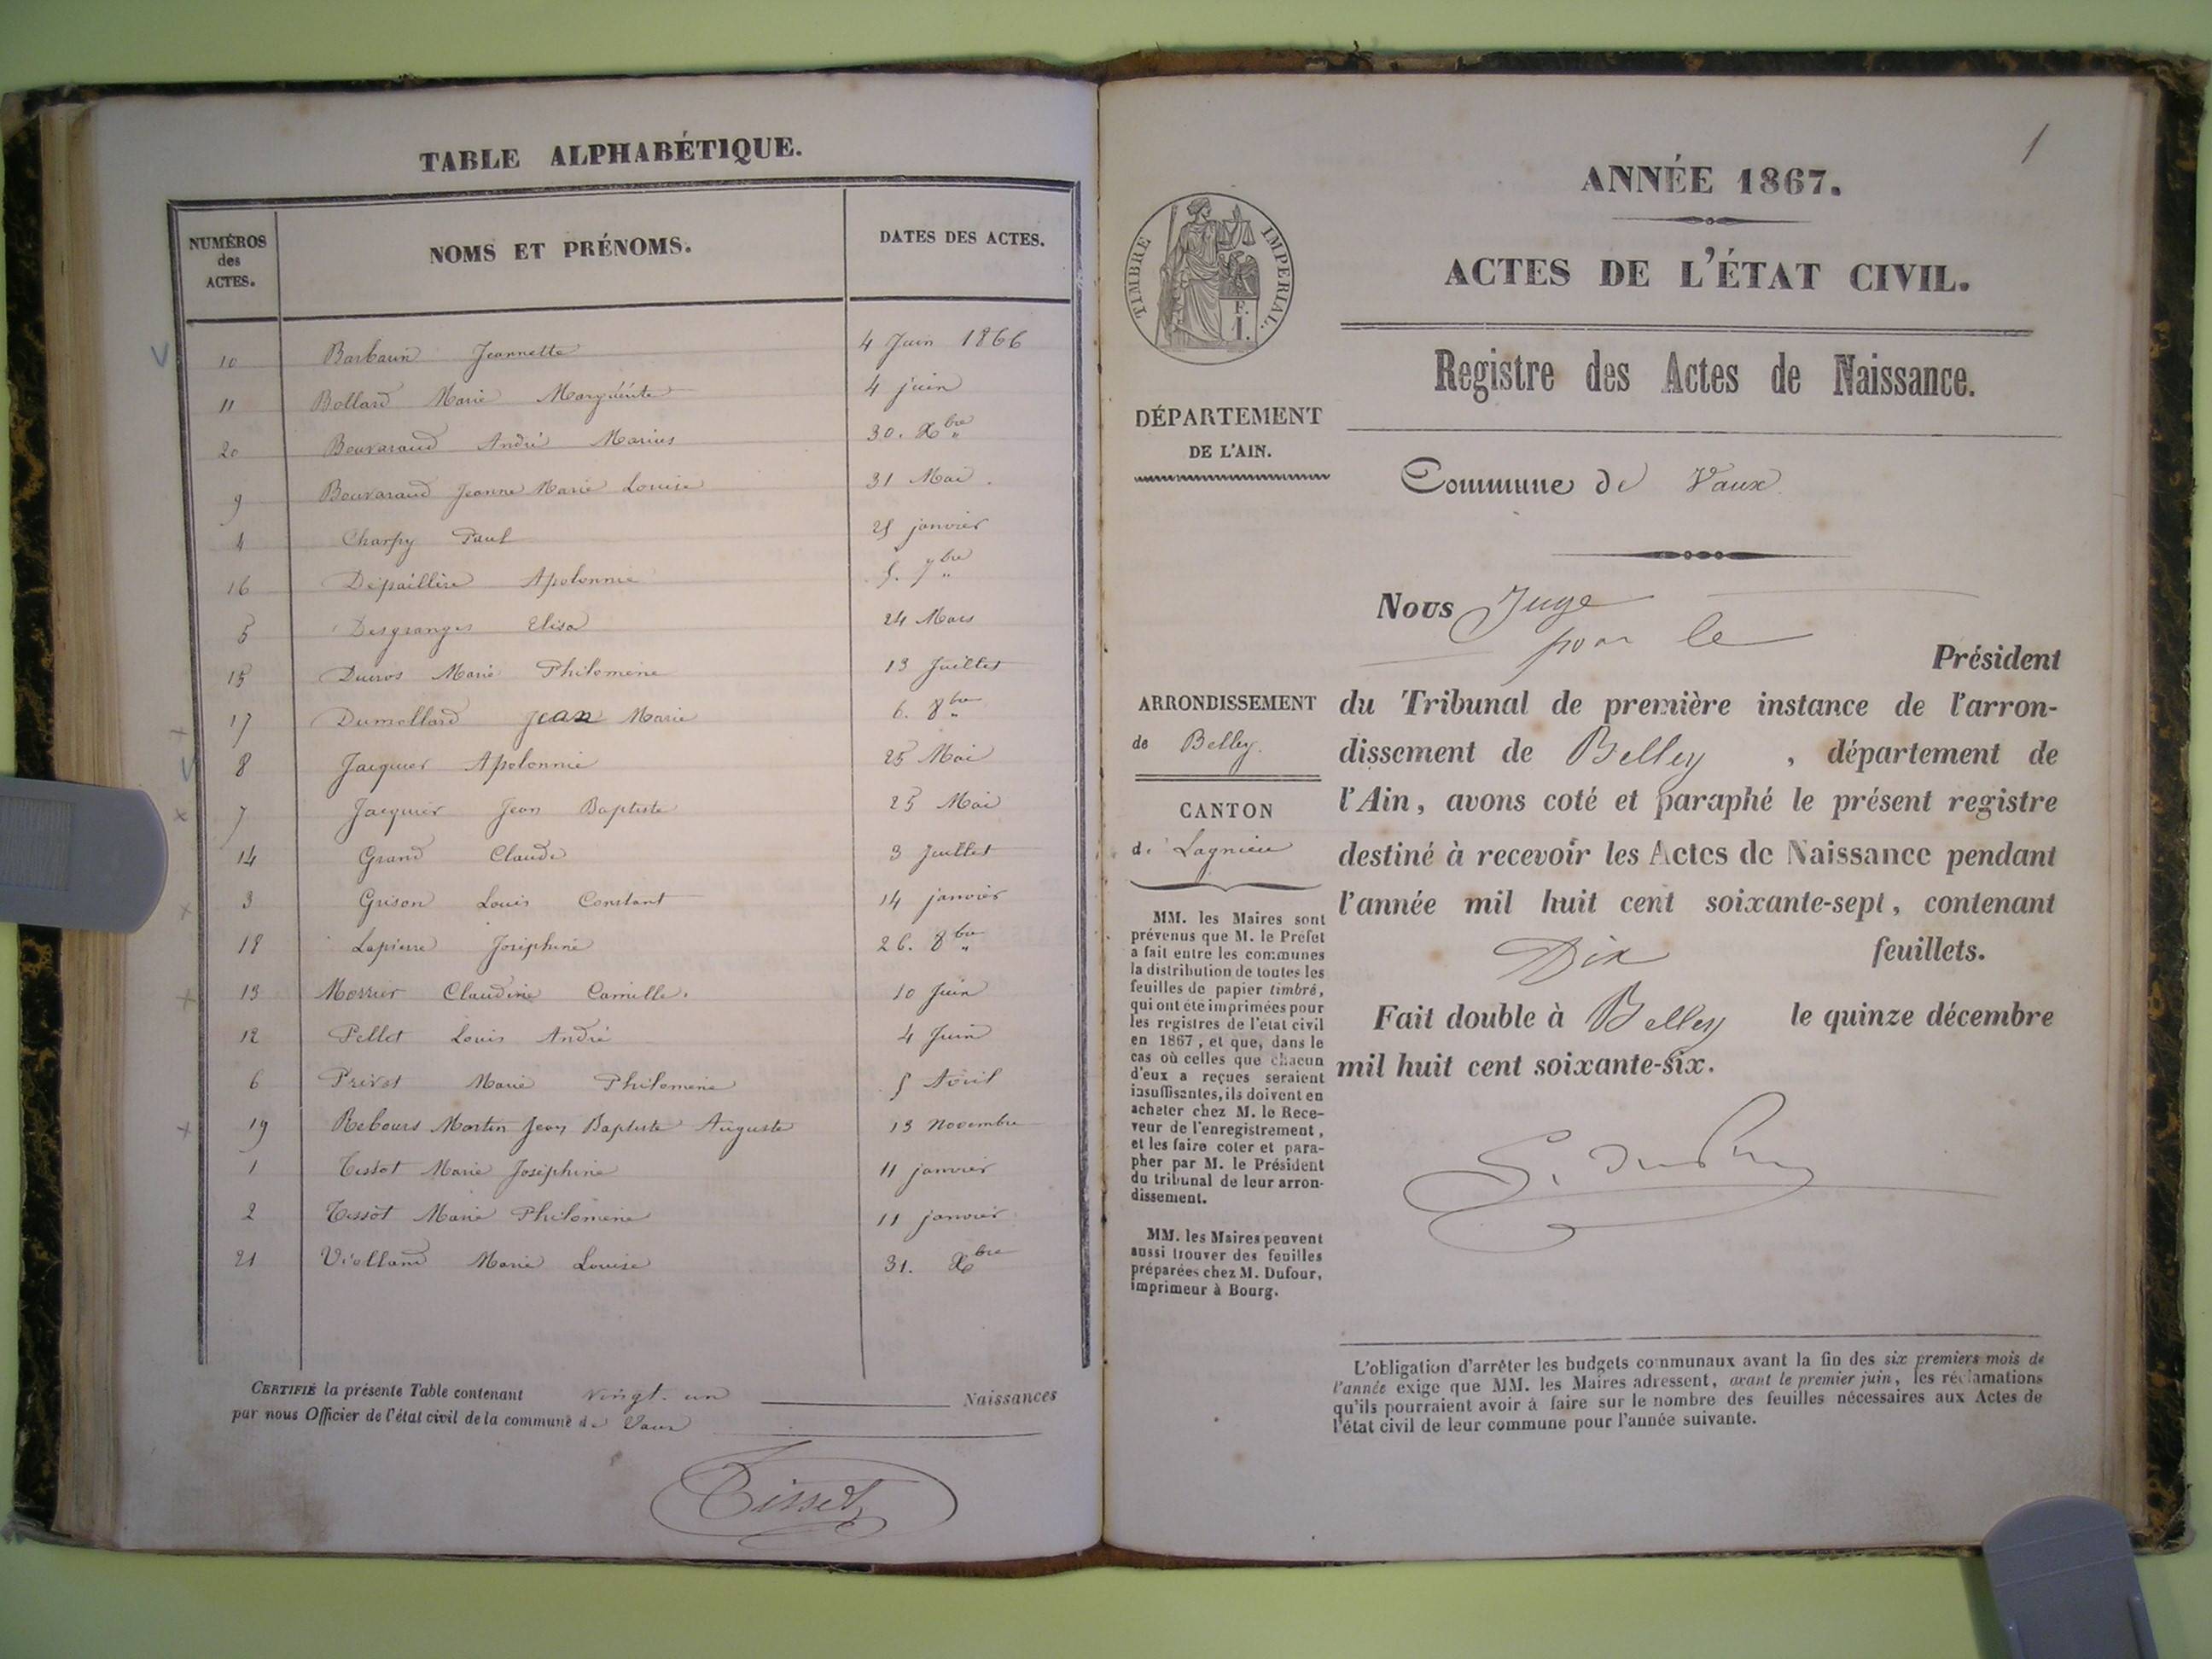 TABLE ALPHABÉTIQUE.
NUMÉROS
des
ACTES.
NOMS ET PRÉNOMS.
DATES DES ACTES.
10 Barbarin Jeannette 4 Juin 1866
11 Bollard Marie Marguérite 4 juin
20 Bouvaraud André Marius 30. Xbre "
9 Bouvaraud Jeanne Marie Louise 31 Mai.
4 Charpy Paul 25 janvier
16 Dépaillère Apolonnie 5. 7bre "
5 Desgranges Elisa 24 Mars
15 Ducros Marie Philomène 13 Juillet
17 Dumollard Jean Marie 6. 8bre "
8 Jacquier Apolonnie 25 Mai
7 Jacquier Jean Baptiste 25 Mai
14 Grand Claude 3 Juillet
3 Grison Louis Constant 14 janvier
18 Lapierre Joséphine 26. 8bre "
13 Claudine Camille. 10 Juin
12 Pellet Louis André 4 Juin
6 Privat Marie Philomène 5 Avril
19 Rebours Martin Jean Baptiste Auguste 13 Novembre
1 Tissot Marie Joséphine 11 janvier
2 Tissot Marie Philomène 11 janvier
21 Violland Marie Louise 31. Xbre
CERTIFIÉ la présente Table contenant vingt. un Naissances
par nous Officier de l'état civil de la commune de Vaux
Tissot
1
ANNÉE 1867.
ACTES DE L'ÉTAT CIVIL.
TIMBRE IMPERIAL.
F.
1.
Registre des Actes de Naissance.
DÉPARTEMENT
DE L'AIN.
Commune de Vaux.
Nous Juge
pour le
Président
ARRONDISSEMENT
de Belley.
CANTON
de Lagnieu
du Tribunal de première instance de l'arron-
dissement de Belley , département de
l'Ain, avons coté et paraphé le présent registre
destiné à recevoir les Actes de Naissance pendant
l'année mil huit cent soixante-sept, contenant
Dix feuillets.
Fait double à Belley le quinze décembre
mil huit cent soixante-six.
MM. les Maires sont
prévenus que M. le Préfet
a fait entre les communes
la distribution de toutes les
feuilles de papier timbré,
qui ont été imprimées pour
les registres de l'état civil
en 1867, et que, dans le
cas où celles que chacun
d'eux a reçues seraient
insuffisantes, ils doivent en
acheter chez M. le Rece-
veur de l'enregistrement,
et les faire coter et para-
pher par M. le Président
du tribunal de leur arron-
dissement.
MM. les Maires peuvent
aussi trouver des feuilles
préparées chez M. Dufour,
imprimeur à Bourg.
L'obligation d'arrêter les budgets communaux avant la fin des six premiers mois de
l'année exige que MM. les Maires adressent, avant le premier juin, les réclamations
qu'ils pourraient avoir à faire sur le nombre des feuilles nécessaires aux Actes de
l'état civil de leur commune pour l'année suivante.